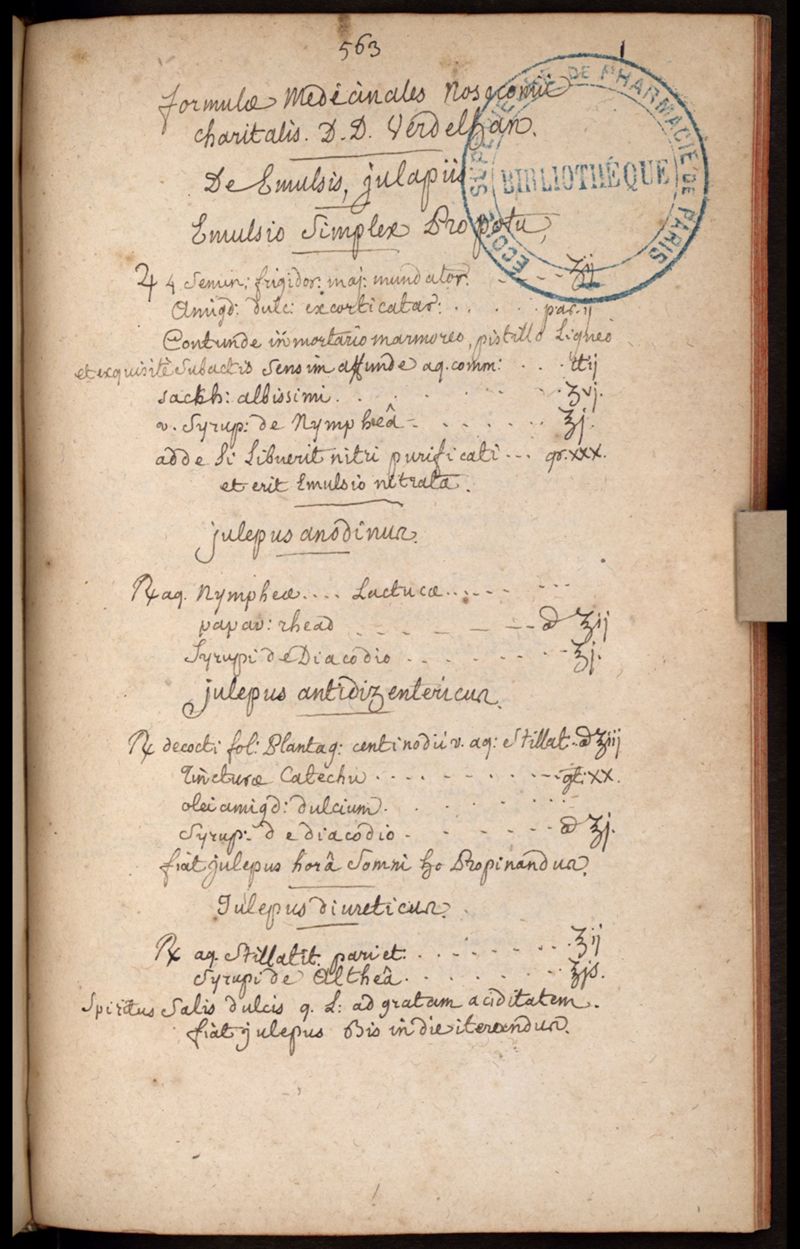 563
1
ECOLE SUPERIEURE DE PHARMACIE DE PARIS
BIBLIOTHÈQUE
formulæ Medicinales Nosocomii
charitatis. D.D. Verdelhan.
De Emulsis, julapiis
Emulsio Simplex Pro potu,
♃ 4 Semin: frigidor: maj: mundator. - - - - ʒij
Amigd: dulc: excorticatar: . . . . . par. ij
Contunde in mortario marmoreo, pistillo Ligneo
et exquisitè Subactis Sensim affunde aq. comm: . . . ℔ij
sackh: albissimi . . . . . . ʒvj.
v. Syrup: de Nymphæâ - . . . . . ℥j.
adde Si Libuerit nitri purificati ... gr. xxx.
et erit Emulsio nitrata.
julepus anodinus.
℞ aq. Nympheæ .... Lactucæ ..... - - -
papav: rhead - - - - - - - ā ℥ij
Syrupi de Diacodio - - - - - - ℥j.
julepus antidizentericus.
℞ decocti fol: Plantag: centinodii v. aq: Stillat. ā ℥iij
Tincturæ Catechu . . . . - - - - gt: xx.
olei amigd: dulcium. . . . . . . .
Syrup: de diacodio - - - - - - ā ℥j.
fiat julepus horâ Somni Propinandus.
Julepus diureticus.
℞ aq. Stillatit. pariet: . . . . - - - ℥ij
Syrupi de Altheâ . . . . . . ℥js.
Spiritus Salis dulcis q. S: ad gratam aciditatem.
fiat julepus Bis in die iterandus.